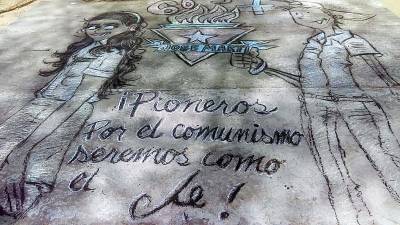 JOSE MARTI
¡Pioneros
Por el comunismo
seremos como
el Che!